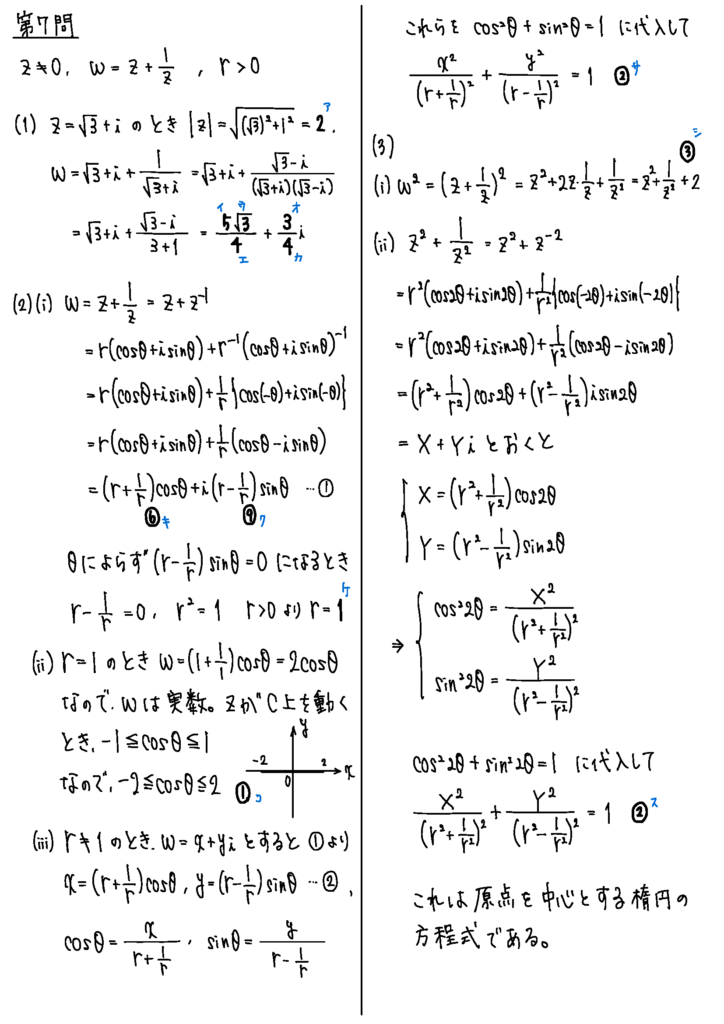 第7問
z≠0, w=z+1/z , r>0
(1) z=√3+i のとき |z|=√((√3)²+1²)=2 ア.
w=√3+i+1/(√3+i)=√3+i+(√3-i)/((√3+i)(√3-i))
=√3+i+(√3-i)/(3+1) = 5√3/4 + 3/4 i イ ウ エ オ カ
(2)(i) w=z+1/z=z+z⁻¹
=r(cosθ+isinθ)+r⁻¹(cosθ+isinθ)⁻¹
=r(cosθ+isinθ)+1/r{cos(-θ)+isin(-θ)}
=r(cosθ+isinθ)+1/r(cosθ-isinθ)
=(r+1/r)cosθ+i(r-1/r)sinθ …①
⑥キ ⑨ク
θによらず(r-1/r)sinθ=0 になるとき
r-1/r=0, r²=1 r>0 より r=1 ケ
(ii) r=1 のとき w=(1+1/1)cosθ=2cosθ
なので、wは実数。zがC上を動く
とき、-1≦cosθ≦1
なので、-2≦cosθ≦2 ①コ
y
-2 0 2 x
(iii) r≠1のとき、w=x+yi とすると ①より
x=(r+1/r)cosθ, y=(r-1/r)sinθ …②,
cosθ=x/(r+1/r), sinθ=y/(r-1/r)
これらを cos²θ+sin²θ=1 に代入して
x²/(r+1/r)²+y²/(r-1/r)²=1 ②サ
(3)
③シ
(i) w²=(z+1/z)²=z²+2z・1/z+1/z²=z²+1/z²+2
(ii) z²+1/z²=z²+z⁻²
=r²(cos2θ+isin2θ)+1/r²{cos(-2θ)+isin(-2θ)}
=r²(cos2θ+isin2θ)+1/r²(cos2θ-isin2θ)
=(r²+1/r²)cos2θ+(r²-1/r²)isin2θ
=X+Yi とおくと
X=(r²+1/r²)cos2θ
Y=(r²-1/r²)sin2θ
⇒ cos²2θ=X²/(r²+1/r²)²
sin²2θ=Y²/(r²-1/r²)²
cos²2θ+sin²2θ=1 に代入して
X²/(r²+1/r²)²+Y²/(r²-1/r²)²=1 ②ス
これは原点を中心とする楕円の
方程式である。